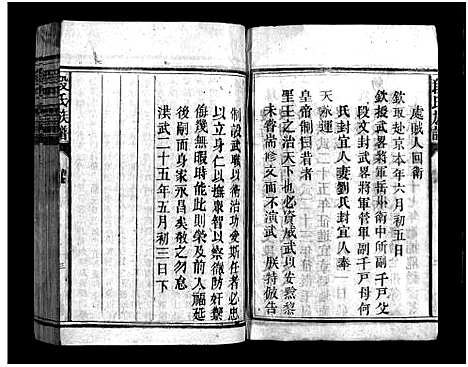 處賊人回衛
欽取赴京本年六月初五日
欽授武畧將軍岳州衛中所副千戶父
段文封武畧將軍管軍副千戶母何
氏封宜人妻劉氏封宜人奉
天承運
皇帝制曰昔者
聖王之治天下也必資威武以安黔黎
未嘗崇修文而不演武朕特倣古
制設武職以衛治功受斯任者必忠
以立身仁以撫衆智以察微防奸禦
侮幾無暇時能此則榮及前人福延
後嗣而身家永昌矣敬之勿怠
洪武二十五年五月初三日下
段氏族譜